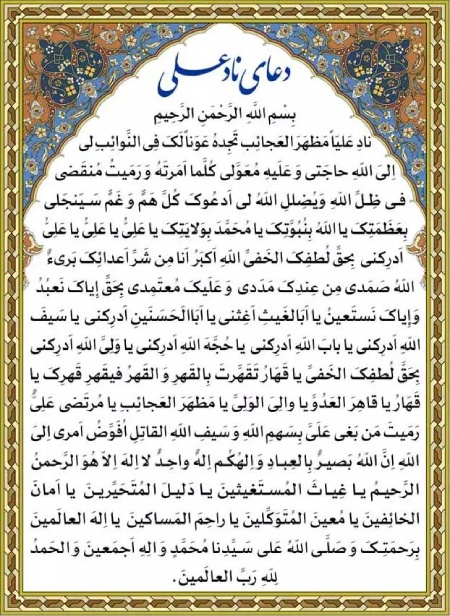 دعای ناد علی
بِسْمِ اللَّهِ الرَّحْمنِ الرَّحِیمِ
نادِ عَلِیَاً مَظهَرَ العَجائِبِ تَجِدهُ عَوناً لَکَ فِی النَّوائِبِ لی
اِلیَ اللّهِ حاجَتی وَ عَلَیهِ مُعَوَّلی کُلَّما اَمَرتَهُ وَ رَمَیتُ مُنقَضی
فی ظِلِّ اللّهِ وَ یُضلِلِ اللّهُ لی اَدعُوکَ کُلَّ هَمٍّ وَ غَمٍّ سَیَنجَلی
بِعَظَمَتِکَ یا اللّهُ بِنُبُوَّتِکَ یا مُحَمَّد بِوِلایَتِکَ یا عَلِیُّ یا عَلِیُّ یا عَلِیُّ
اَدرِکنی بِحَقِّ لُطفِکَ الخَفیِّ اللّهِ اَکبَرُ اَنا مِن شَرِّ اَعدائِکَ بَریءُ
اَللهُ صَمَدی مِن عِندِکَ مَدَدی وَ عَلَیکَ مُعتَمِدی بِحَقِّ إیاکَ نَعبُدُ
وَ إیاکَ نَستَعینُ یا اَبالغَیثِ اَغِثنی یا اَبَاالحَسَنَینِ اَدرِکنی یا سَیفَ
اللّهِ اَدرِکنی یا بابَ اللّهِ اَدرِکنی یا حُجَّهَ اللّهِ اَدرِکنی یا وَلِیَّ اللّهِ اَدرِکنی
بِحَقِّ لُطفِکَ الخَفیِّ یا قَهّارُ تَقَهَّرتَ بِالقَهرِ وَ القَهرُ فیقَهرِ قَهرِکَ یا
قَهّارُ یا قاهِرَ العَدُوِّ یا والِیَ الوَلِیِّ یا مَظهَرَ العَجائِبِ یا مُرتَضی عَلِیُّ
رَمَیتَ مَن بَغی عَلَیَّ بِسَهمِ اللّهِ وَ سَیفِ اللّهِ القاتِلِ اُفَوِّضُ اَمری اِلیَ
اللّهِ اِنَّ اللّهَ بَصیرُ بِالعِبادِ وَ اِلهُکُم اِلهُ واحِدُ لا اِلهَ اِلاّ هُوَ الرَّحمنُ
الرَّحیمُ یا غِیاثَ المُستَغیثینَ یا دَلیلَ المُتَحَیِّرینَ یا اَمانَ
الخائِفینَ یا مُعینَ المُتَوَکِّلینَ یا راحِمَ المَساکینَ یا اِلهَ العالَمینَ
بِرَحمَتِکَ وَ صَلَّی اللّهُ عَلی سَیِّدِنا مُحَمَّدٍ وَ الِهِ اَجمَعینَ وَ الحَمدُ
لِلّهِ رَبِّ العالَمینَ.